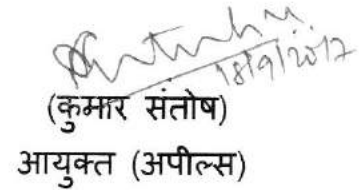 18/9/2017
(कुमार संतोष)
आयुक्त (अपील्स)